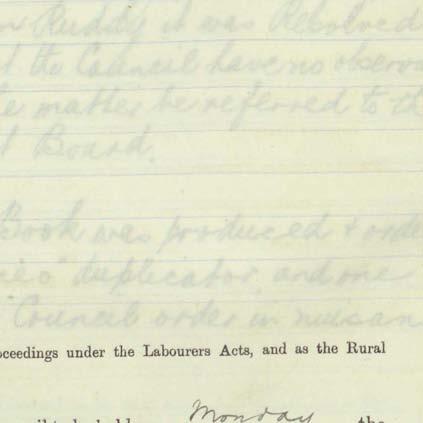 Ruddy it was Resolved
the Council have no observa
matter be referred to th
Board.
Book was produced & orde
duplicator and one
Council order in nuisan
oceedings under the Labourers Acts, and as the Rural
Monday the